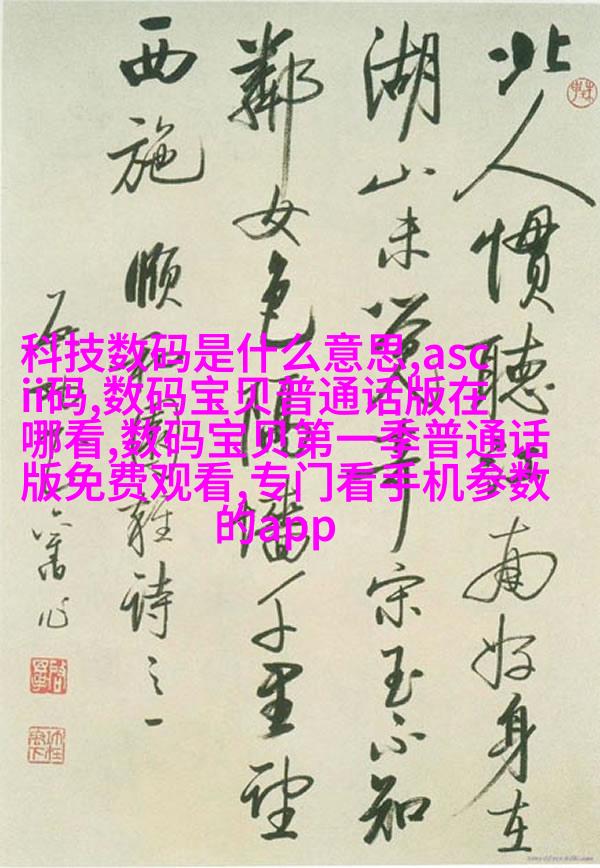 科技数码是什么意思,asc
ii码,数码宝贝普通话版在
哪看,数码宝贝第一季普通话
版免费观看,专门看手机参数
的app
北人慣聽江南好身在
湖山未覺奇宋玉不知
鄰女色隔墻千里望
西施 頤和園雜詩之一
舊作